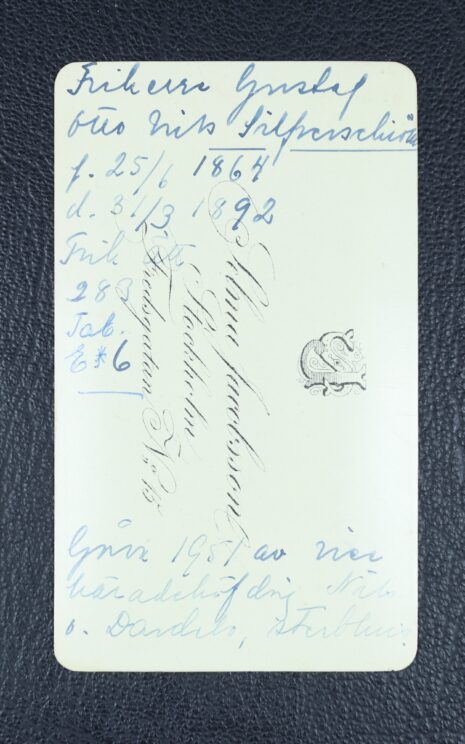 Friherre Gustaf
Otto Nils Silfverschiöld
f. 25/6 1864
d. 31/3 1892
Frih ätt
283
Tab.
6
Selma Jacobsson
Stockholm
Fredsgatan No 15
Gåva 1951 av vice
häradshöfding Nils
v. Dardels, sterbhus